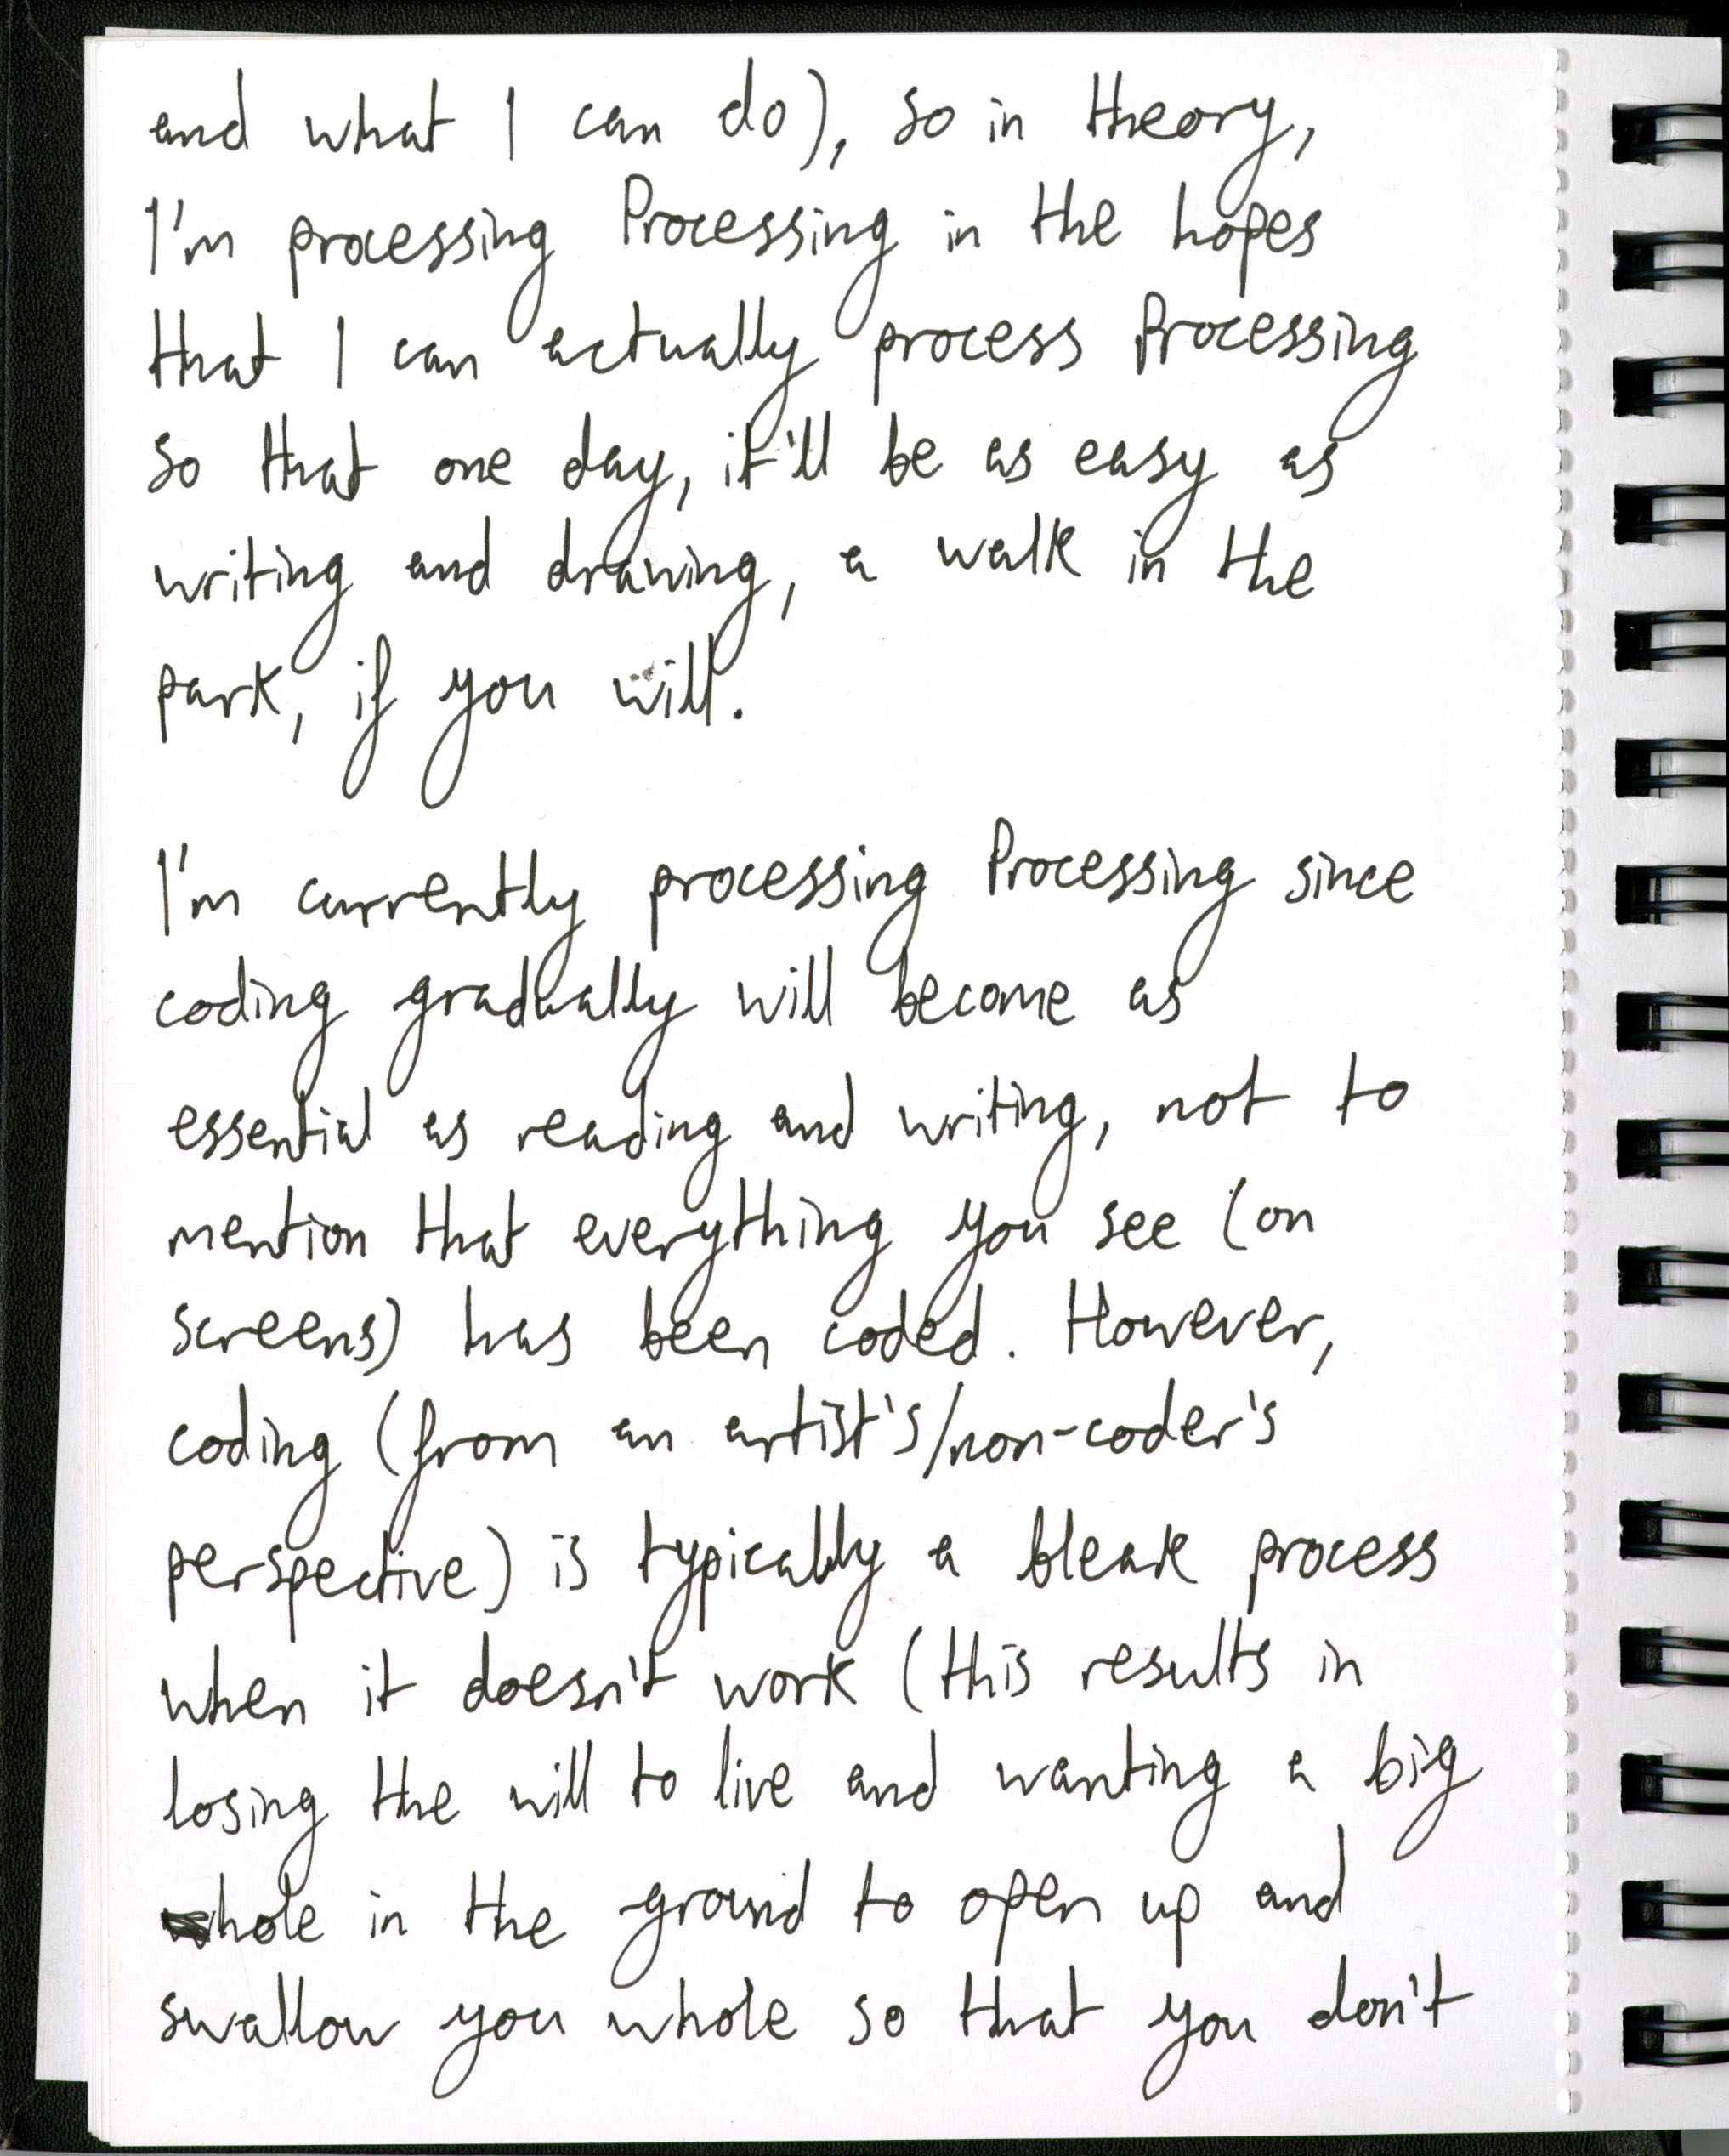 and what I can do), so in theory,
I'm processing Processing in the hopes
that I can actually process Processing
so that one day, it'll be as easy as
writing and drawing, a walk in the
park, if you will.
I'm currently processing Processing since
coding gradually will become as
essential as reading and writing, not to
mention that everything you see (on
screens) has been coded. However,
coding (from an artist's/non-coder's
perspective) is typically a bleak process
when it doesn't work (this results in
losing the will to live and wanting a big
hole in the ground to open up and
swallow you whole so that you don't